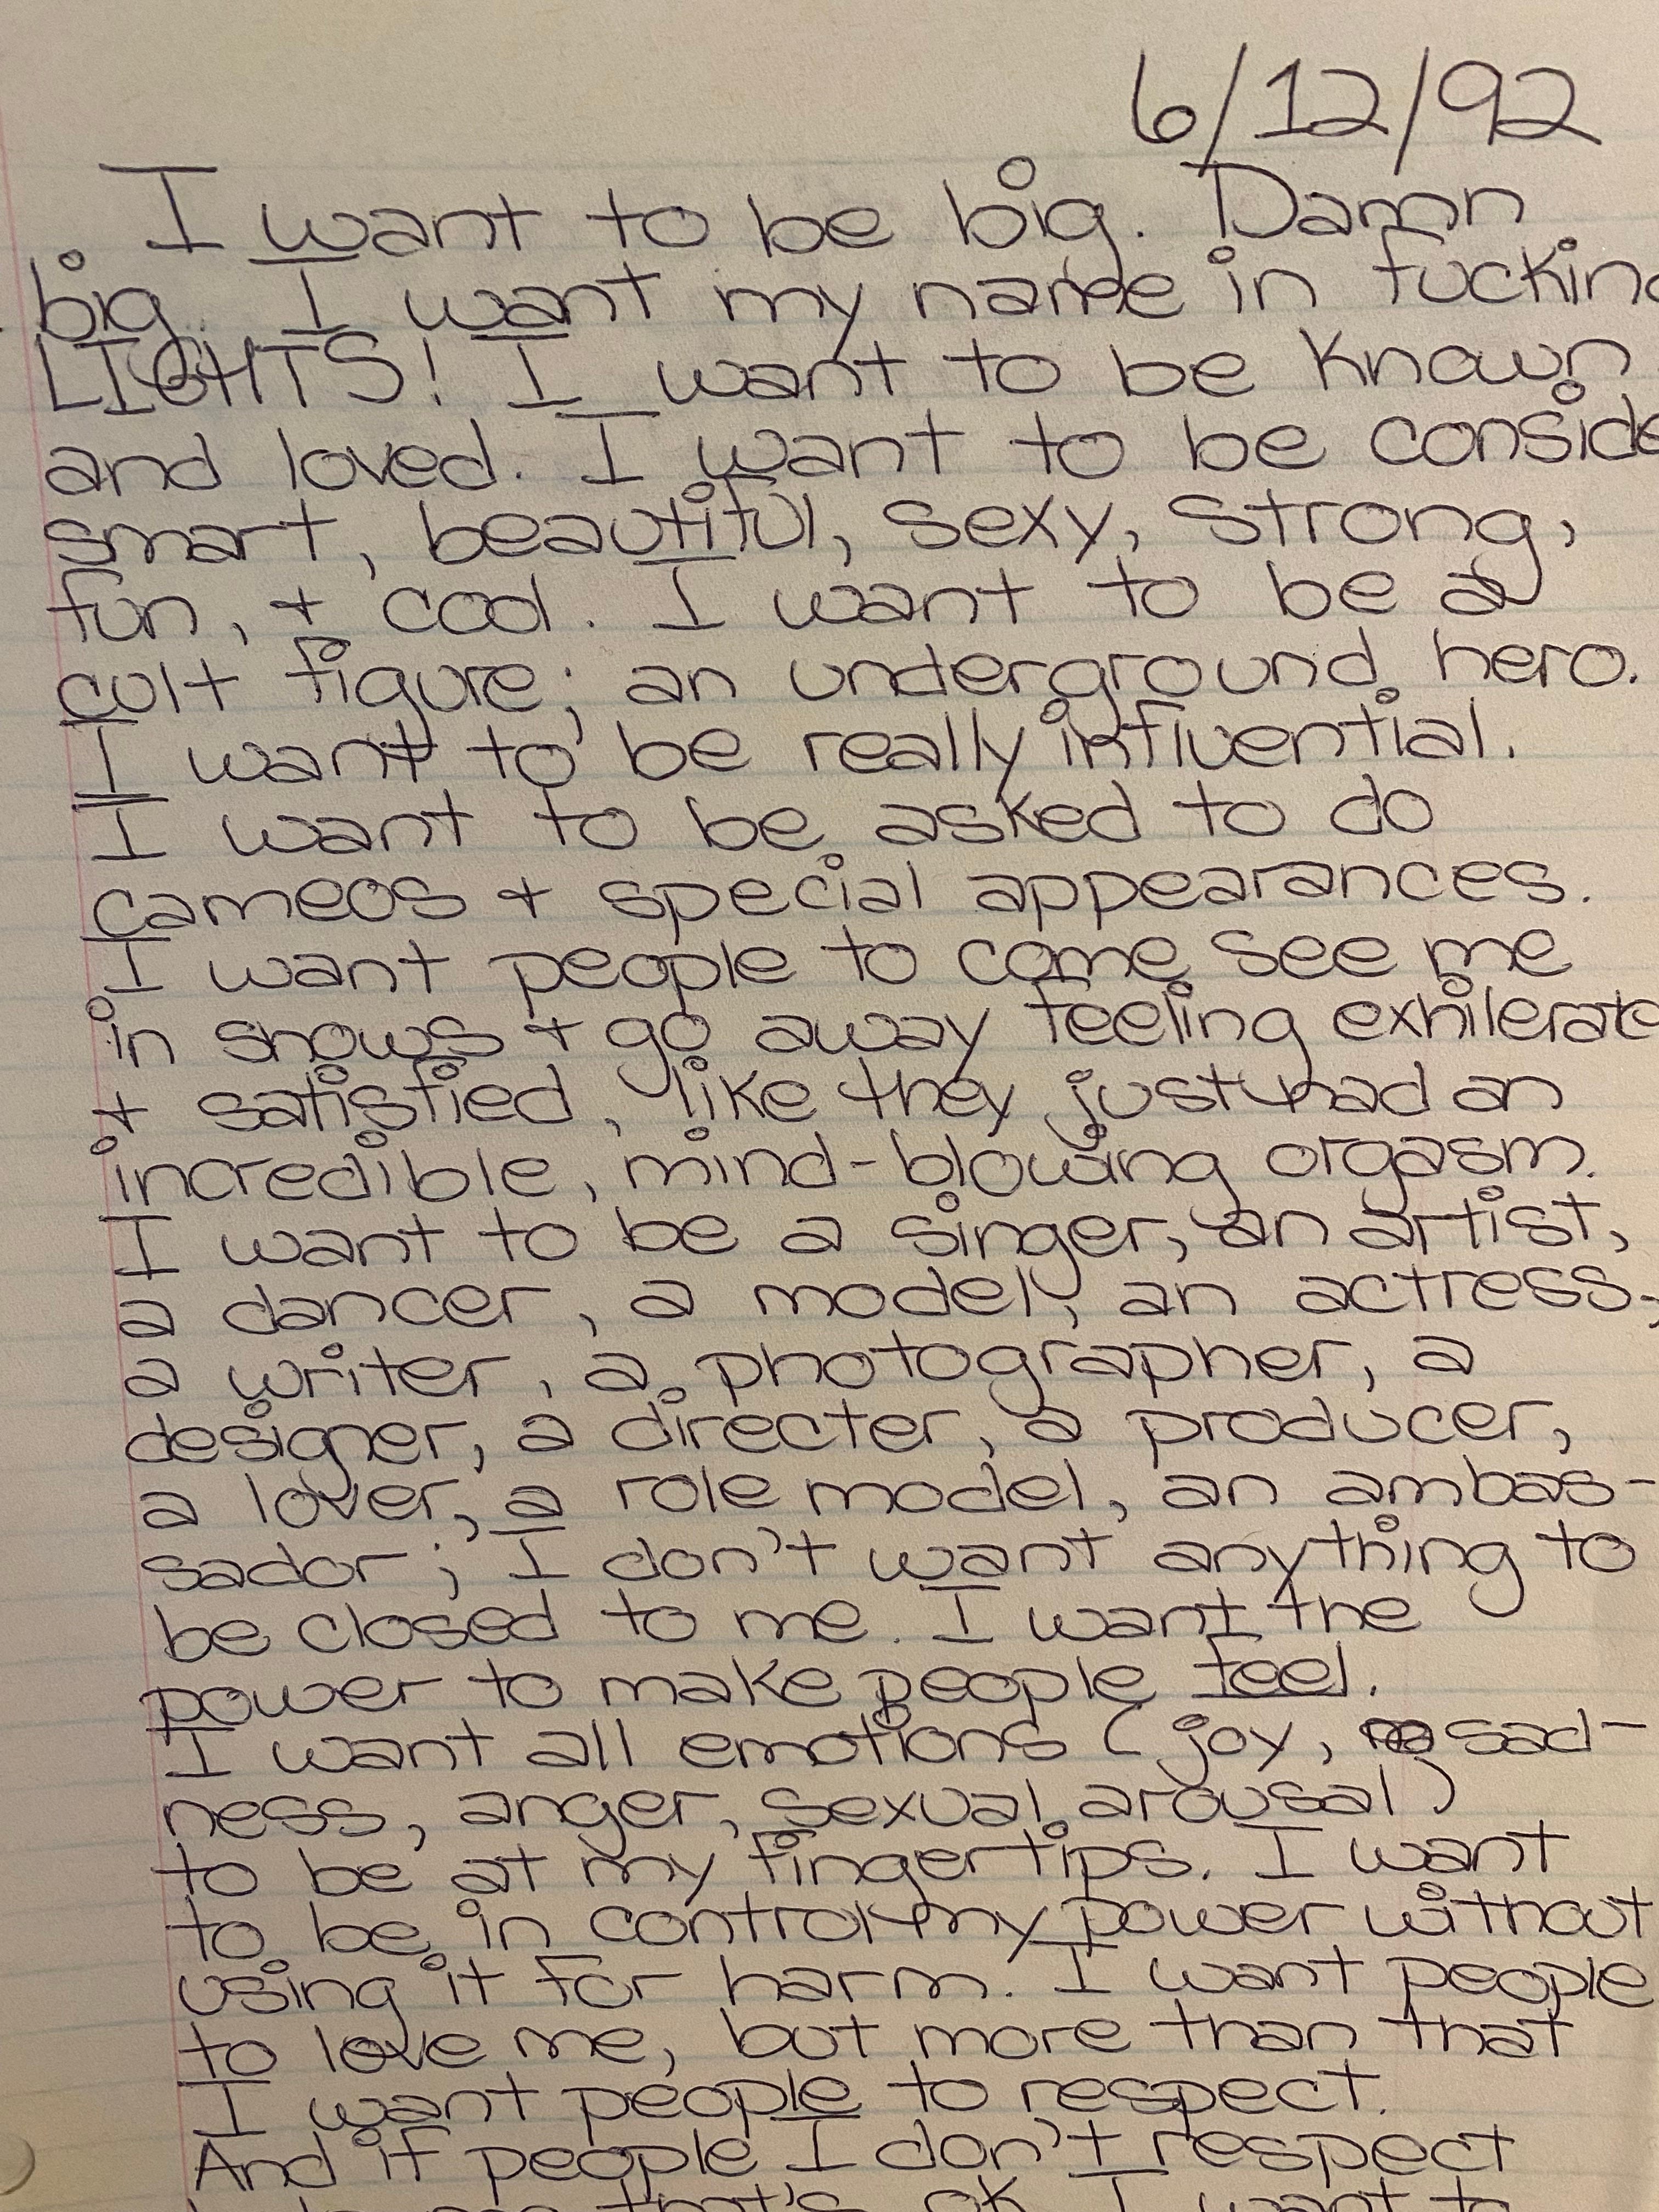 6/12/92
I want to be big. Damn
big. I want my name in fuckin
LIGHTS! I want to be known
and loved. I want to be conside
smart, beautiful, sexy, strong,
fun, + cool. I want to be a
cult figure; an underground hero.
I want to be really influential.
I want to be asked to do
cameos + special appearances.
I want people to come see me
in shows + go away feeling exhilerate
+ satisfied, like they just had an
incredible, mind-blowing orgasm.
I want to be a singer, an artist,
a dancer, a model, an actress,
a writer, a photographer, a
designer, a directer, a producer,
a lover, a role model, an ambas-
sador; I don't want anything to
be closed to me. I want the
power to make people feel.
I want all emotions (joy, sad-
ness, anger, sexual arousal)
to be at my fingertips. I want
to be in control + my power without
using it for harm. I want people
to love me, but more than that
I want people to respect.
And if people I don't respect
that's ok. I want to